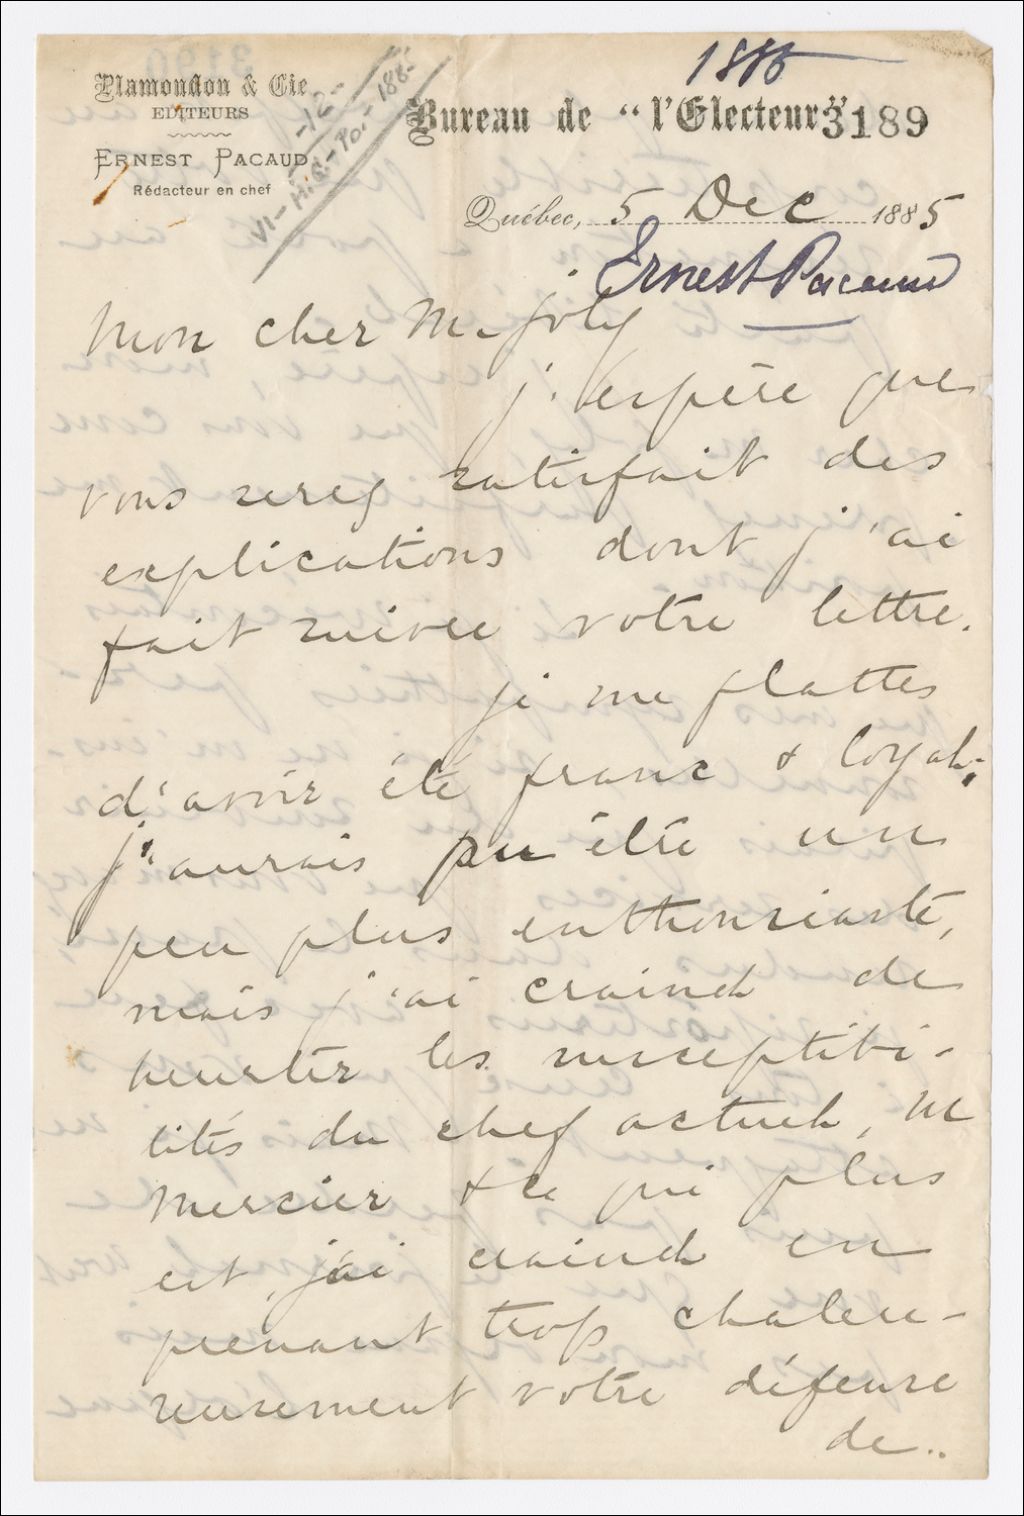 1885
Plamondon & Cie
EDITEURS
ERNEST PACAUD
Rédacteur en chef
Bureau de "l'Electeur"
3189
Québec, 5 Dec 1885
Ernest Pacaud
Mon cher M. Joly
j'espère que
vous serez satisfait des
explications dont j'ai
fait suivre votre lettre.
je me flattes
d'avoir été franc & loyal;
j'aurais pu être un
peu plus enthousiaste,
mais j'ai craind de
heurter les susceptibi-
lités du chef actuel, M
Mercier & ce qui plus
est, j'ai craind en
prenant trop chaleu-
reusement votre défense
de..